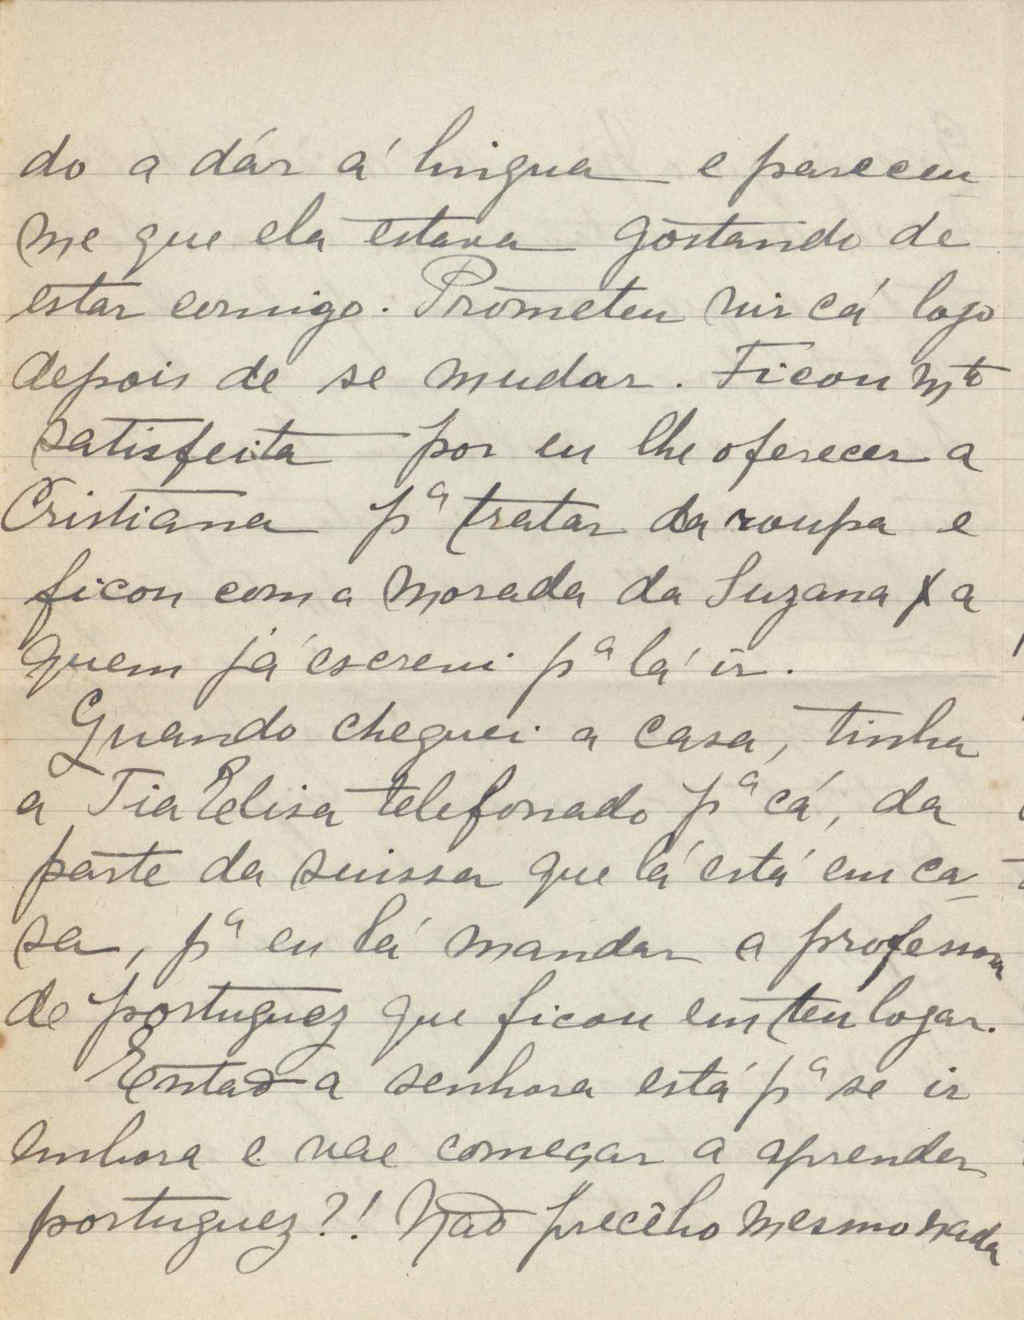 do a dár á lingua e pareceu
me que ela estava gostando de
estar comigo. Prometeu vir cá logo
depois de se mudar. Ficou mto
satisfeita por eu lhe oferecer a
Cristiana pª tratar da roupa e
ficou com a morada da Suzana a
quem já escrevi pª lá ir.
Quando cheguei a casa, tinha
a Tia Elisa telefonado pª cá, da
parte da suissa que lá está em ca
sa, pª eu lá mandar a professora
de portuguez que ficou em teu logar.
Entaõ a senhora está pª se ir
embora e vae começar a aprender
portuguez?! Naõ precêbo mesmo nada